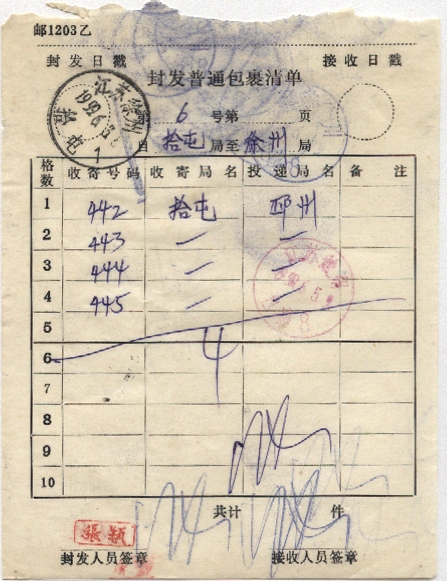 邮1203乙
封发日戳 接收日戳
封发普通包裹清单
江苏徐州
1999.6.5
拾屯
1
第 6 号第 页
自 拾屯 局至 徐州 局
格数 收寄号码 收寄局名 投递局名 备注
1 442 拾屯 邳州
2 443 〃 〃
3 444 〃 〃
4 445 〃 〃
5
6
7
8
9
10
4
共计 件
張颖
封发人员签章 接收人员签章